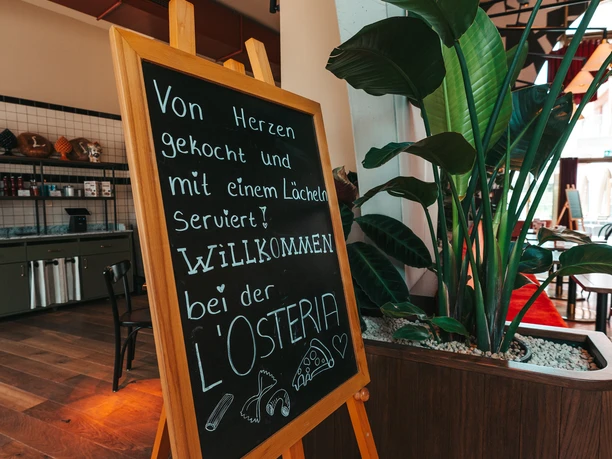 Von Herzen
gekocht und
mit einem Lächeln
serviert!
WiLLKOMMEN
bei der
L'OSTERIA